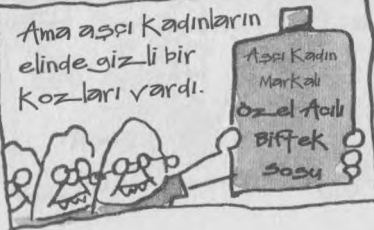 Ama aşçı kadınların
elinde gizli bir
kozları vardı.
Aşçı Kadın
Markalı
Özel Acılı
Biftek
Sosu